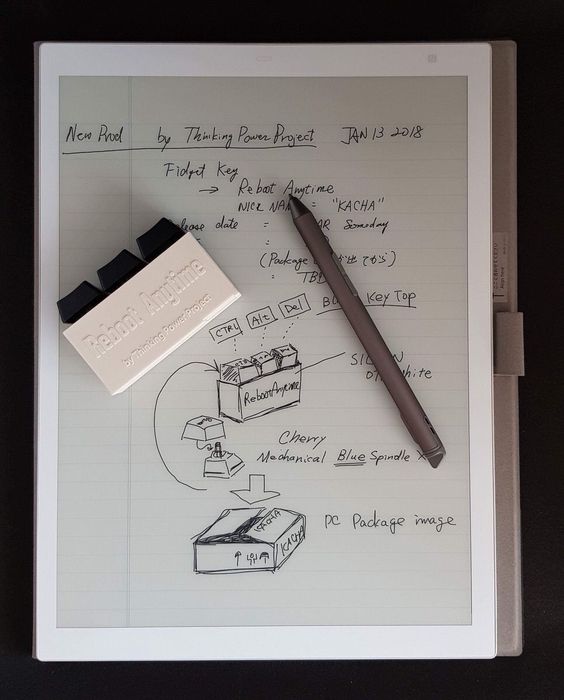 New Prod by Thinking Power Project JAN 13 2018
Fidget Key
→ Reboot Anytime
NICK = "KACHA"
date = Someday
=
(Package
: TBD
Key Top
CTRL Alt Del
Reboot Anytime
White
Cherry
Mechanical Blue Spindle
KACHA
KACHA
PC Package image
Reboot Anytime
by Thinking Power Project